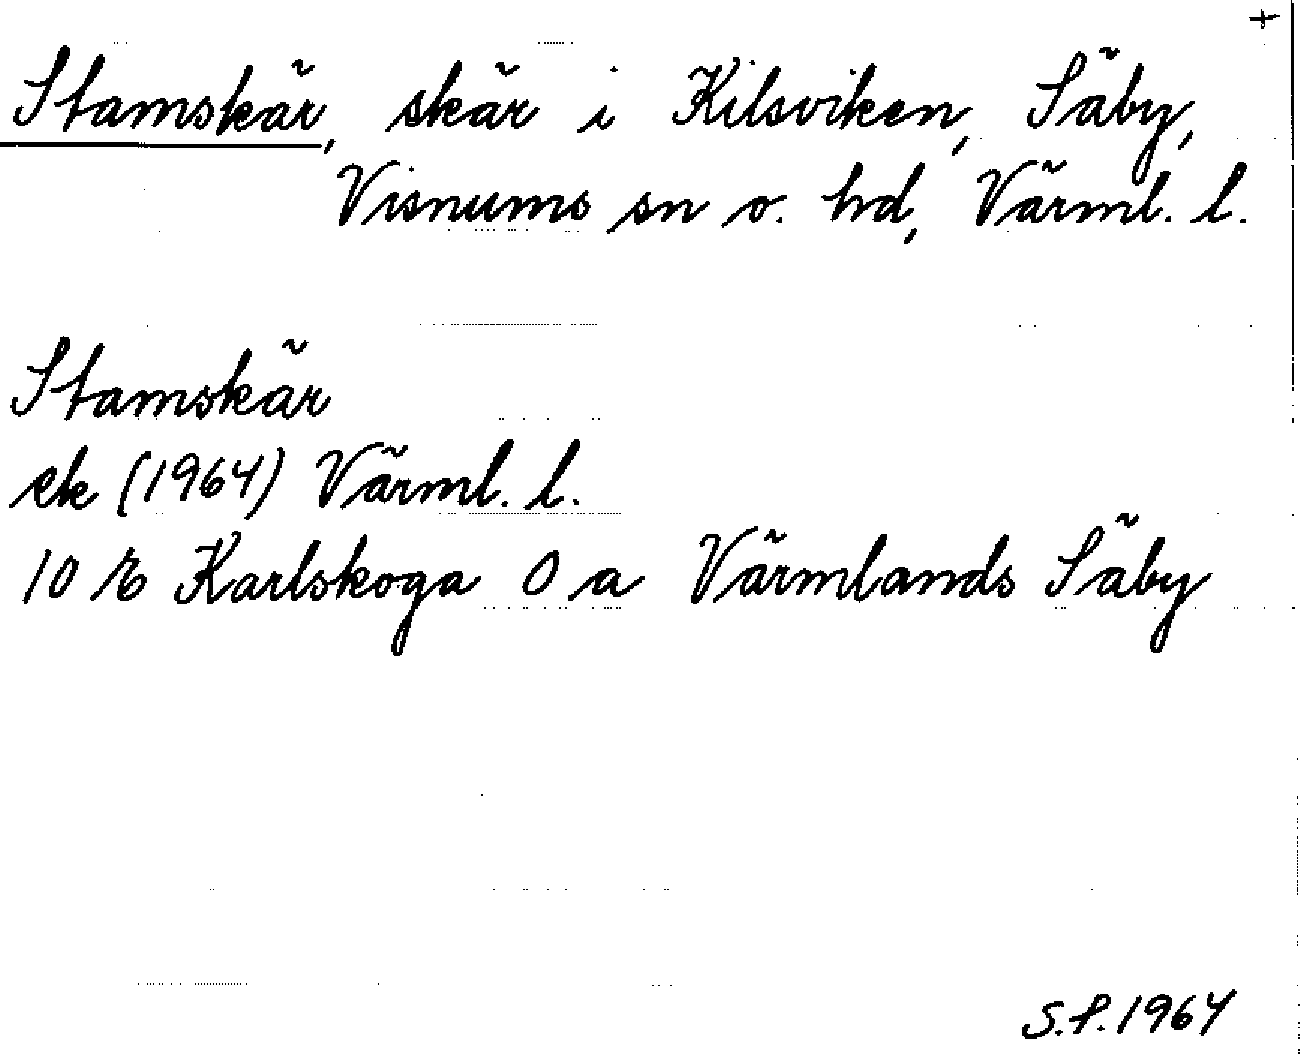 +
Stamskär, skär i Kilsviken, Säby,
Visnums sn o. hd, Värml. l.
Stamskär
ek (1964) Värml. l.
10 E Karlskoga 0 a Värmlands Säby
S.P. 1964